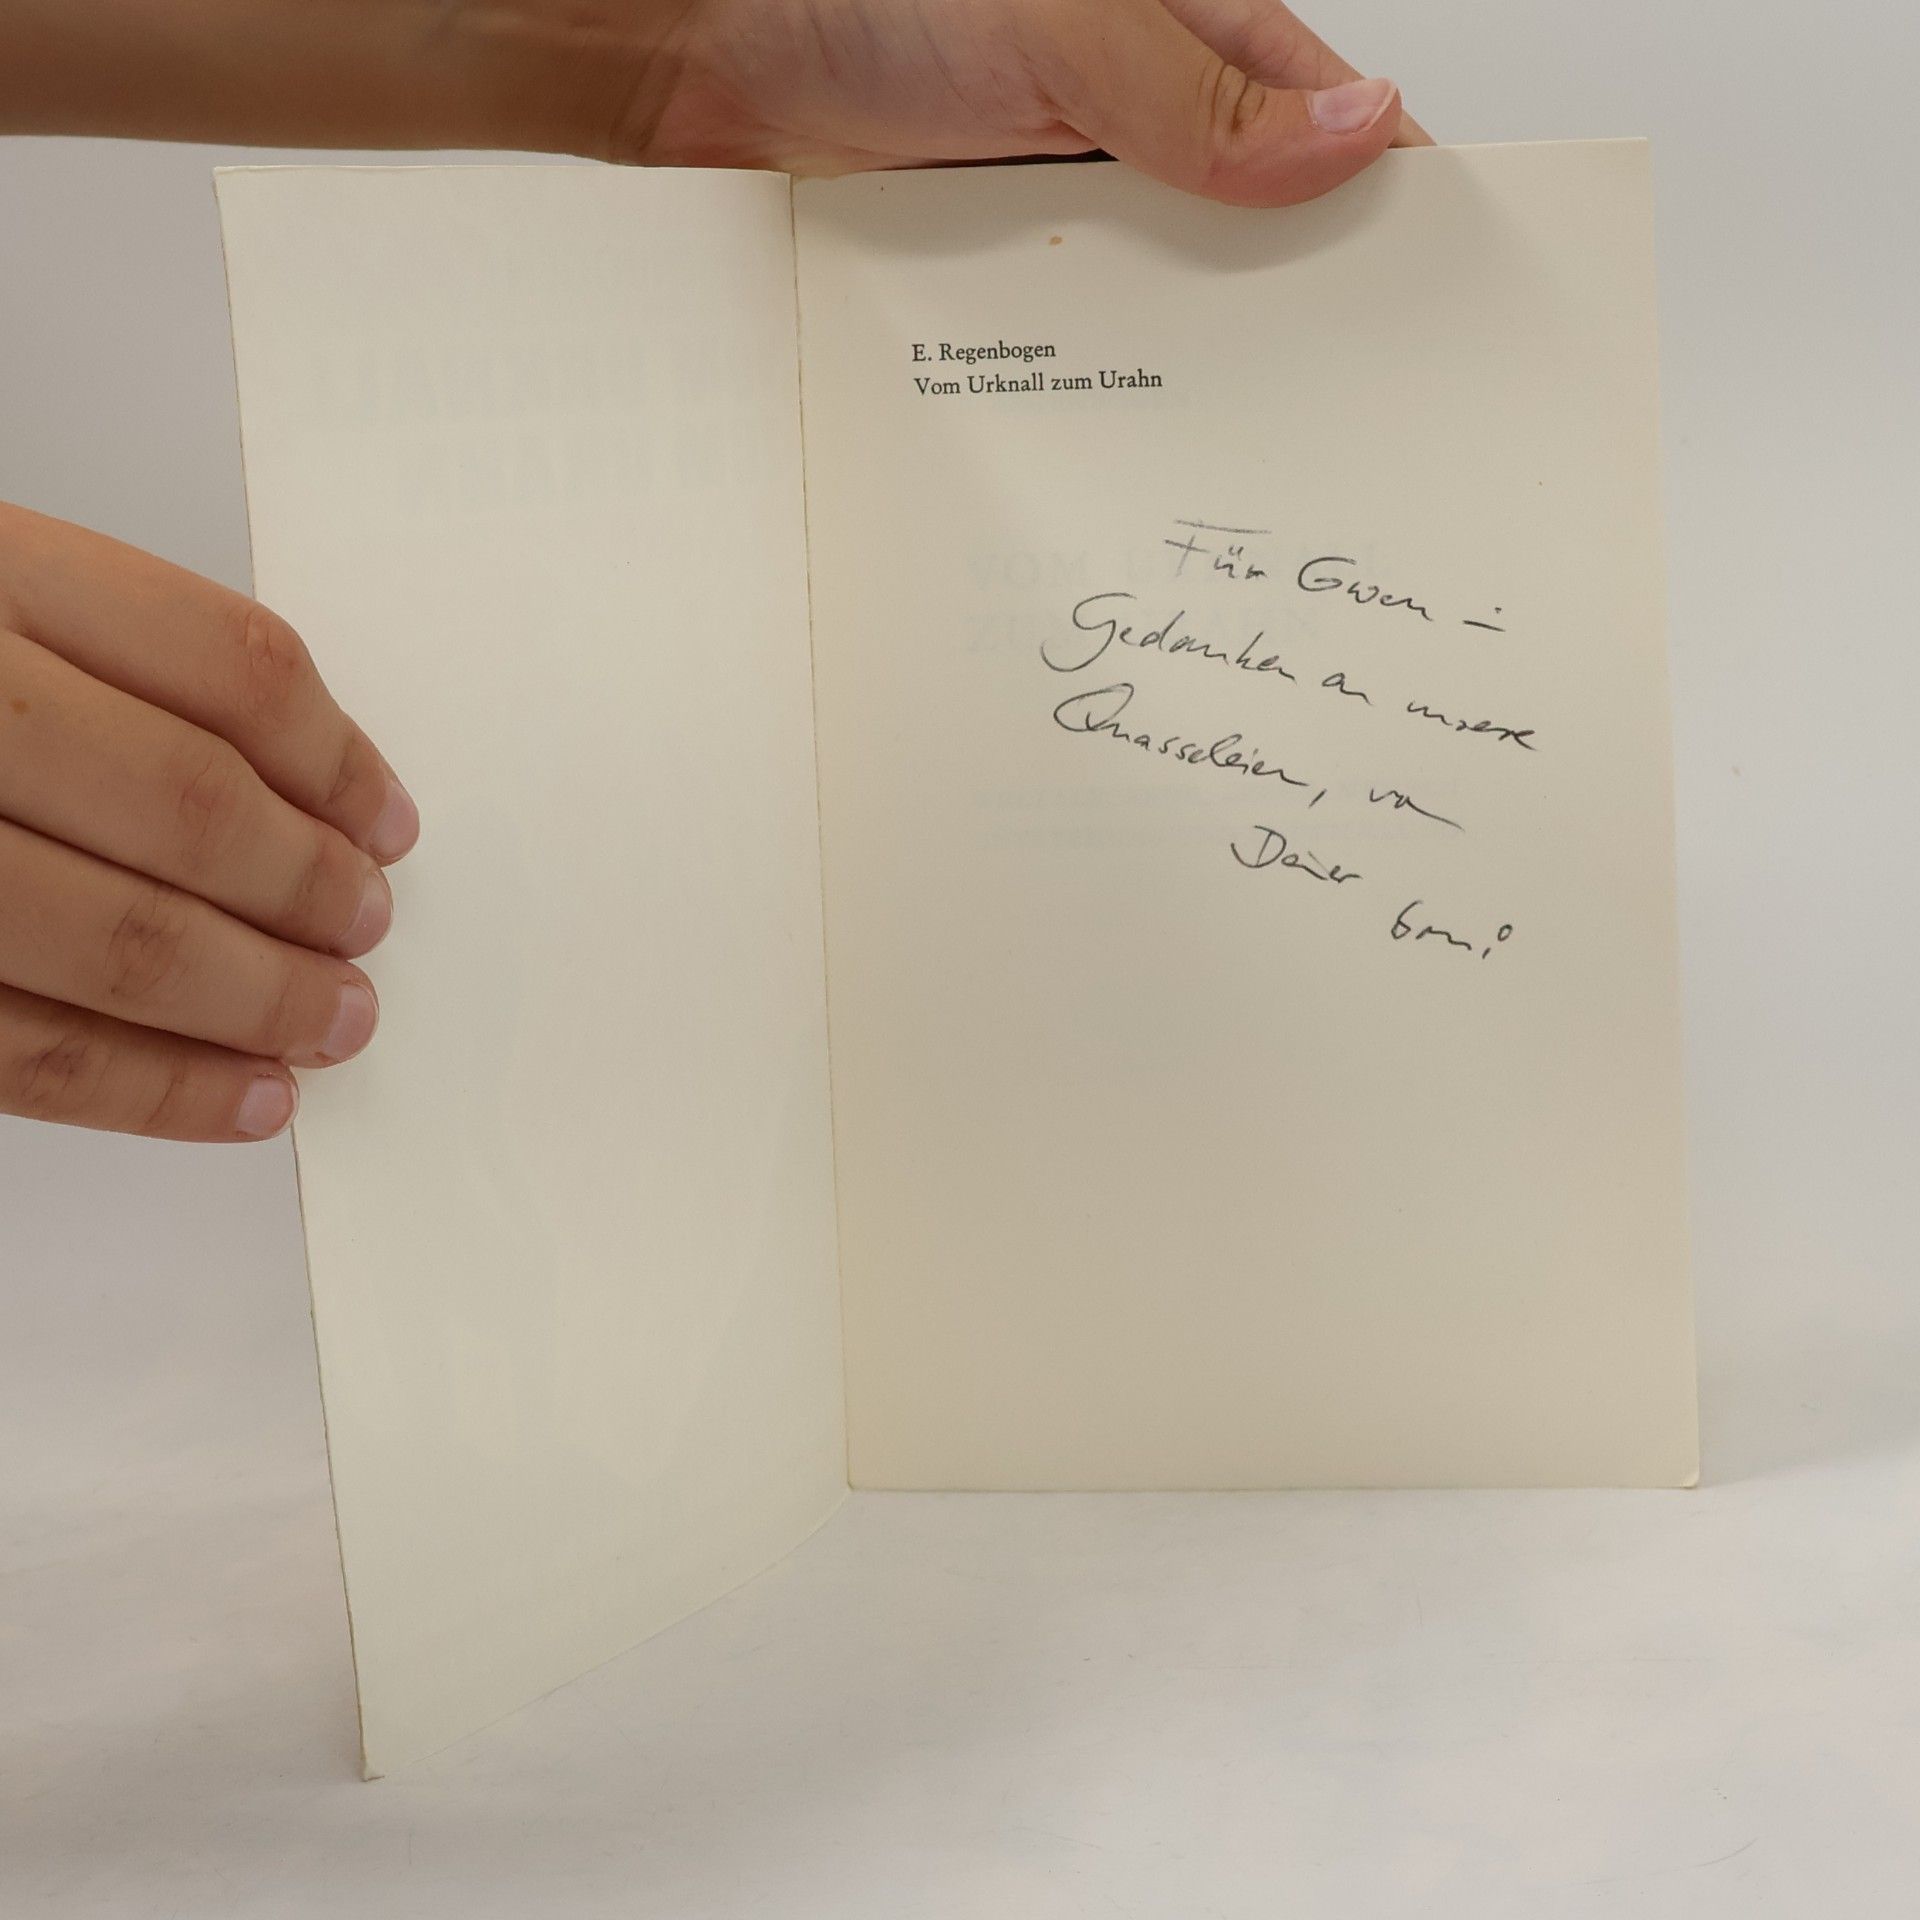 E. Regenbogen
Vom Urknall zum Urahn
Für Gwen –
Gedanken an unsere
Quasseleien, von
Deiner